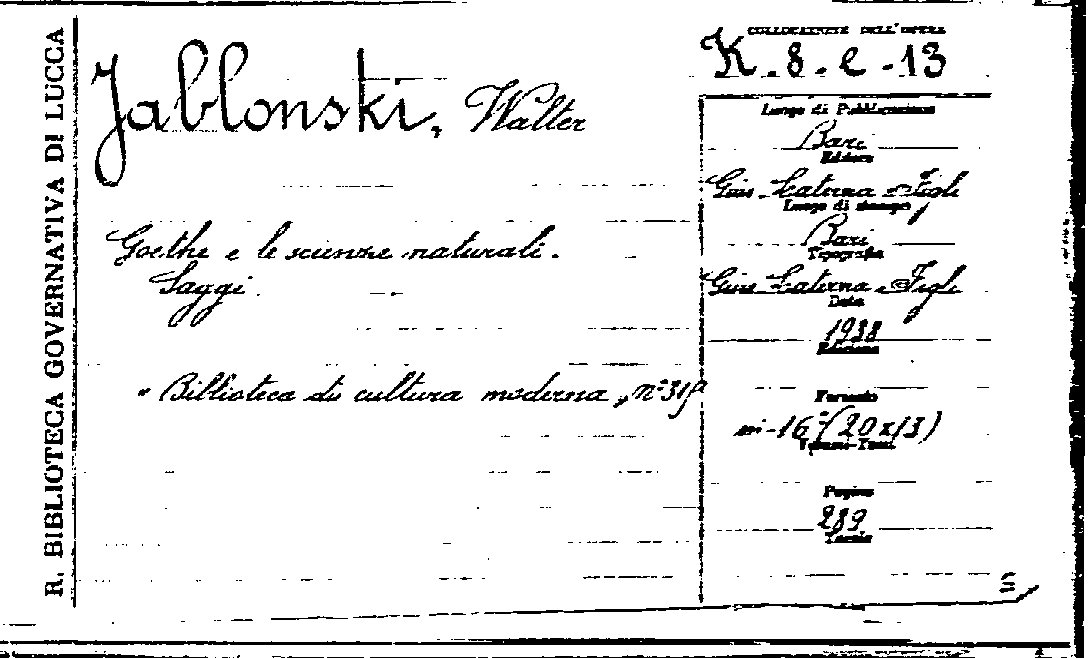 R. BIBLIOTECA GOVERNATIVA DI LUCCA
Jablonski, Walter
Goethe e le scienze naturali.
Saggi.
"Biblioteca di cultura moderna" n°
COLLOCAZIONE DELL'OPERA
K.8.e-13
Luogo di Pubblicazione
Bari
Editore
Gius. Laterza e Figli
Luogo di stampa
Bari
Tipografia
Gius. Laterza e Figli
Data
1938
Edizione
Formato
in-16°(20x13)
Volumi-Tomi
Pagine
289
Tavole